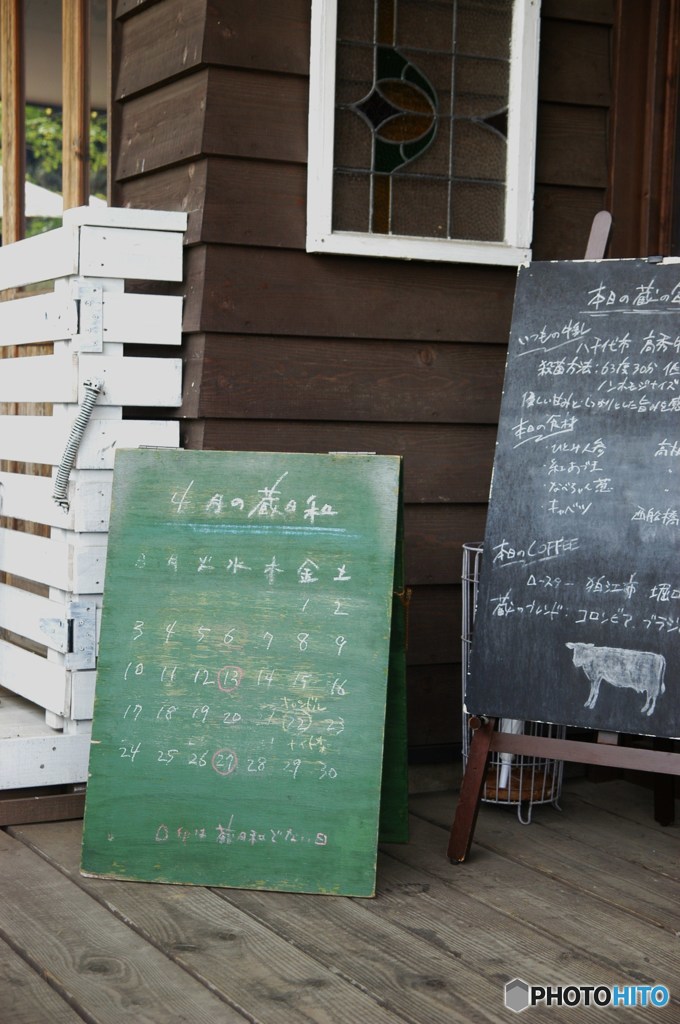 4月の蔵日和
日 月 火 水 木 金 土
1 2
3 4 5 6 7 8 9
10 11 12 13 14 15 16
キャンドル
17 18 19 20 22 23
ナイト
24 25 26 27 28 29 30
印は蔵日和でない日
本日の蔵の
いつもの牛乳
八千代市 高秀牛
殺菌方法:63度30分 低
ノンホモジナイズ
優しい甘みとしっかりとした旨みを感
本日の食材
・ひとみ人参
・紅あづま
・キャベツ
西船橋
本日のCOFFEE
ロースター 狛江市 堀口
蔵のブレンド・コロンビア ブラジル
PHOTOHITO